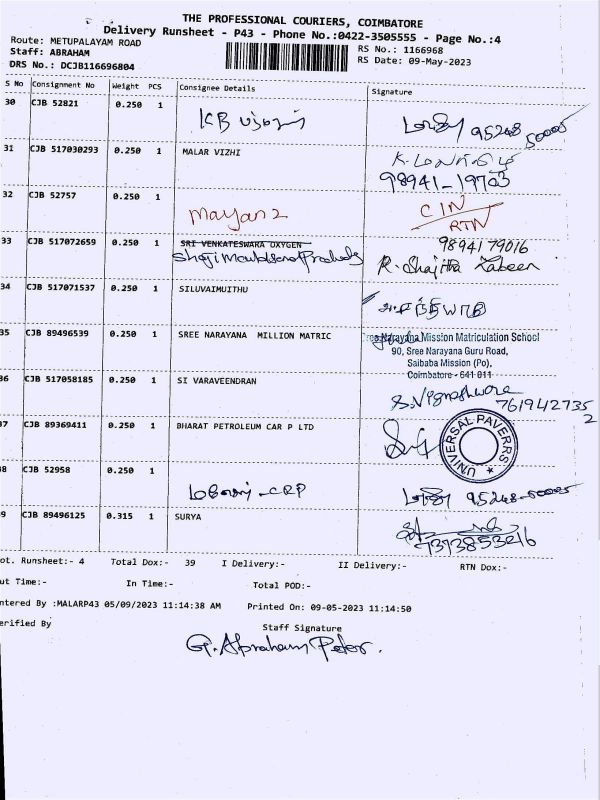 THE PROFESSIONAL COURIERS, COIMBATORE
Delivery Runsheet - P43 - Phone No.:0422-3505555 - Page No.:4
Route: METUPALAYAM ROAD
RS No.: 1166968
Staff: ABRAHAM
RS Date: 09-May-2023
DRS No.: DCJB116696804
S No Consignment No Weight PCS Consignee Details Signature
30 CJB 52821 0.250 1 KB
31 CJB 517030293 0.250 1 MALAR VIZHI
98941-19703
32 CJB 52757 0.250 1 CIN
RTN
33 CJB 517072659 0.250 1 SRI VENKATESWARA OXYGEN 9894179016
R. Shajitha
34 CJB 517071537 0.250 1 SILUVAIMUITHU
35 CJB 89496539 0.250 1 SREE NARAYANA MILLION MATRIC Sree Narayana Mission Matriculation School
90, Sree Narayana Guru Road,
Saibaba Mission (Po),
Coimbatore - 641 011
36 CJB 517058185 0.250 1 SI VARAVEENDRAN
37 CJB 89369411 0.250 1 BHARAT PETROLEUM CAR P LTD UNIVERSAL PAVERRS
38 CJB 52958 0.250 1
39 CJB 89496125 0.315 1 SURYA
7373853216
ot. Runsheet:- 4 Total Dox:- 39 I Delivery:- II Delivery:- RTN Dox:-
ut Time:- In Time:- Total POD:-
ntered By :MALARP43 05/09/2023 11:14:38 AM Printed On: 09-05-2023 11:14:50
erified By Staff Signature
G. Abraham Peter.